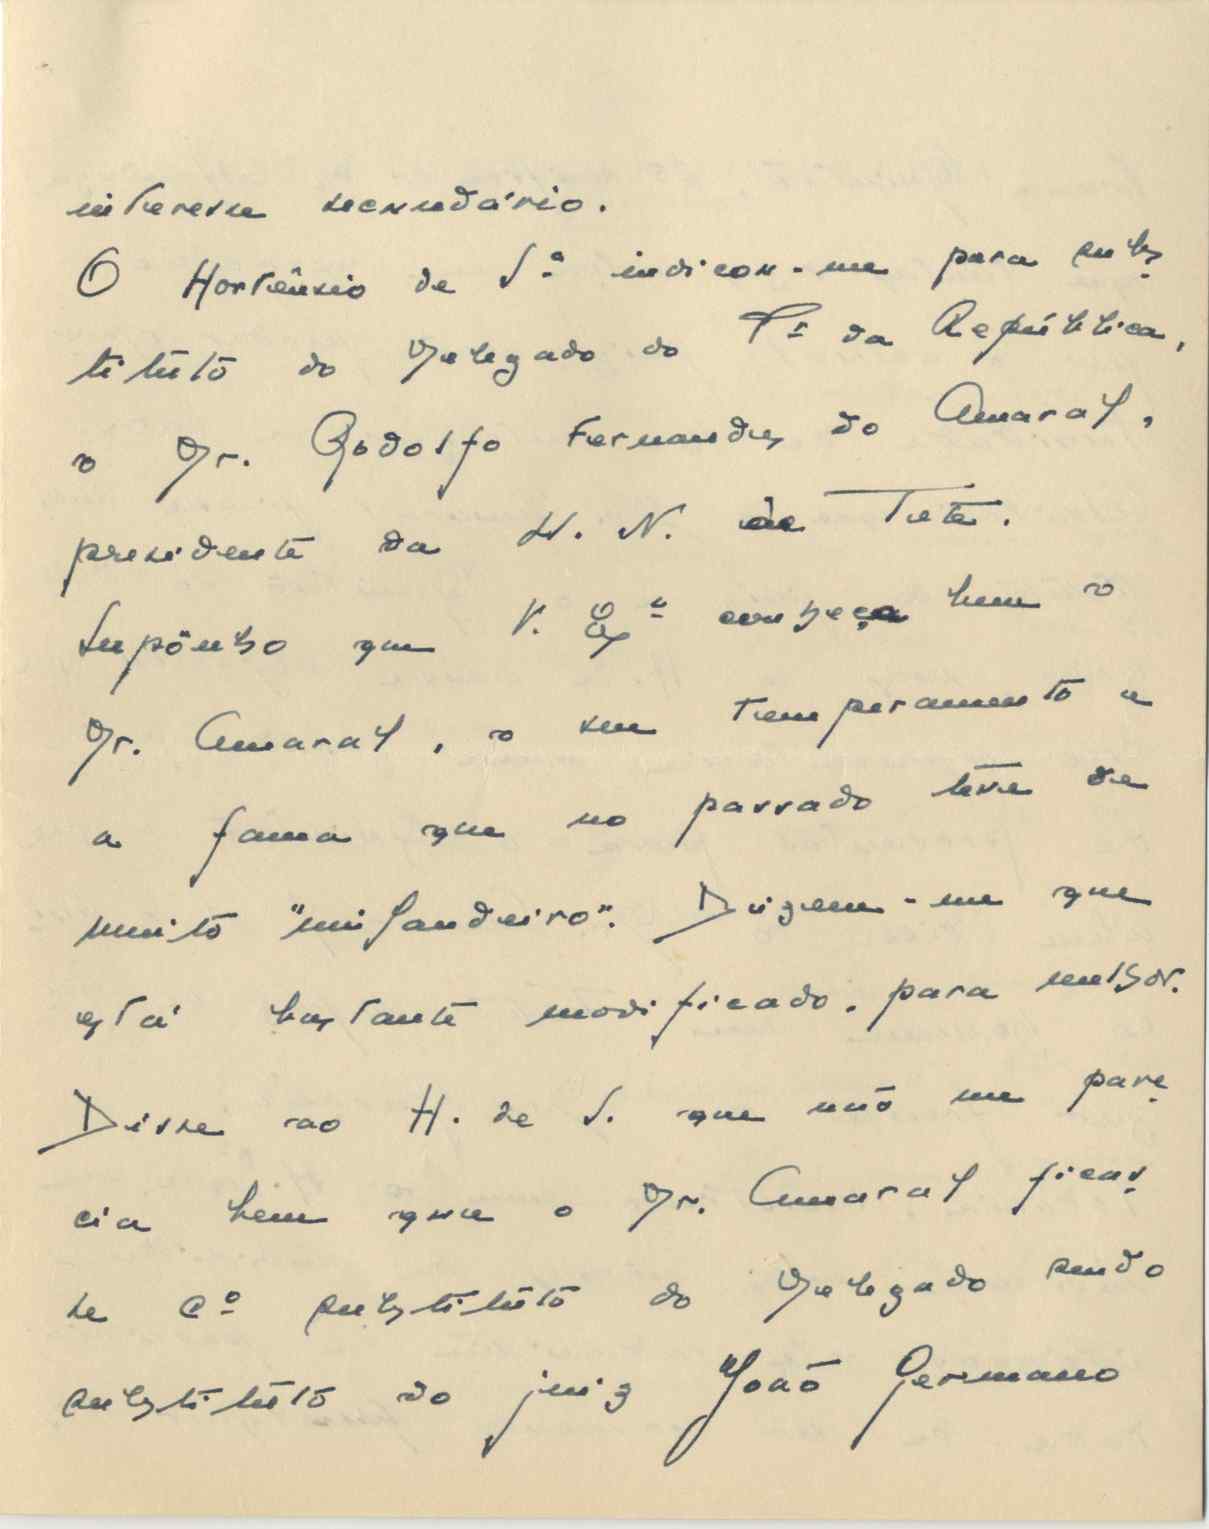 interesse secundário.
O Hortênsio de S.ª indicou-me para subs
tituto do Delegado do Pr da República,
o Dr. Rodolfo Fernandes do Amaral,
presidente da U. N. de Tete.
Supônho que V. Exª conheça bem o
Dr. Amaral, o seu temperamento e
a fama que no passado teve de
muito "milandeiro". Dizem-me que
está bastante modificado, para melhor.
Disse ao H. de S. que não me pare
cia bem que o Dr. Amaral ficas
se cº substituto do Delegado sendo
substituto do juiz João Germano